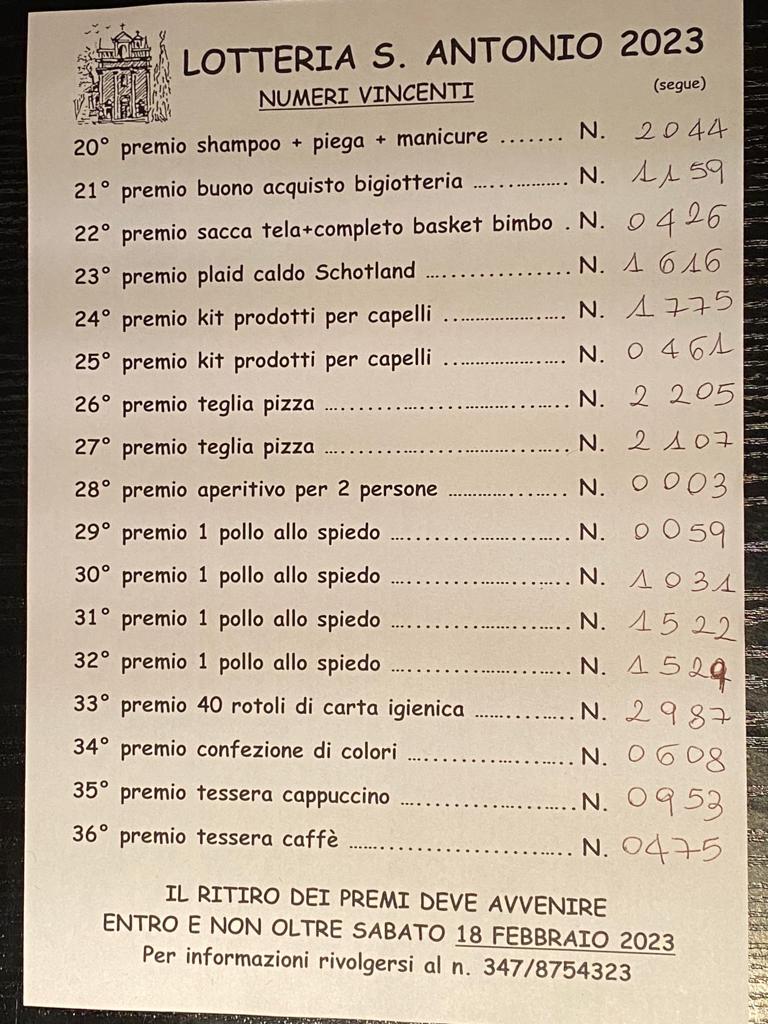 LOTTERIA S. ANTONIO 2023
NUMERI VINCENTI (segue)
20° premio shampoo + piega + manicure ....... N. 2044
21° premio buono acquisto bigiotteria .................. N. 1159
22° premio sacca tela+completo basket bimbo . N. 0426
23° premio plaid caldo Schotland ...................... N. 1616
24° premio kit prodotti per capelli ........................ N. 1775
25° premio kit prodotti per capelli ........................ N. 0461
26° premio teglia pizza ........................................ N. 2205
27° premio teglia pizza ........................................ N. 2107
28° premio aperitivo per 2 persone ..................... N. 0003
29° premio 1 pollo allo spiedo .............................. N. 0059
30° premio 1 pollo allo spiedo .............................. N. 1031
31° premio 1 pollo allo spiedo .............................. N. 1522
32° premio 1 pollo allo spiedo .............................. N. 1529
33° premio 40 rotoli di carta igienica .................. N. 2987
34° premio confezione di colori ........................... N. 0608
35° premio tessera cappuccino ............................ N. 0953
36° premio tessera caffè .................................... N. 0475
IL RITIRO DEI PREMI DEVE AVVENIRE
ENTRO E NON OLTRE SABATO 18 FEBBRAIO 2023
Per informazioni rivolgersi al n. 347/8754323